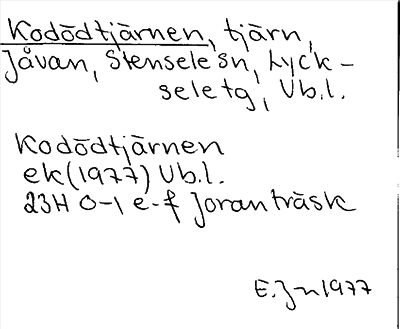 Kodödtjärnen, tjärn,
Jåvan, Stensele sn, Lyck-
sele tg, Vb.l.
Kodödtjärnen
ek (1977) Vb.l.
23H 0-1 e-f Joranträsk
E. Jn 1977